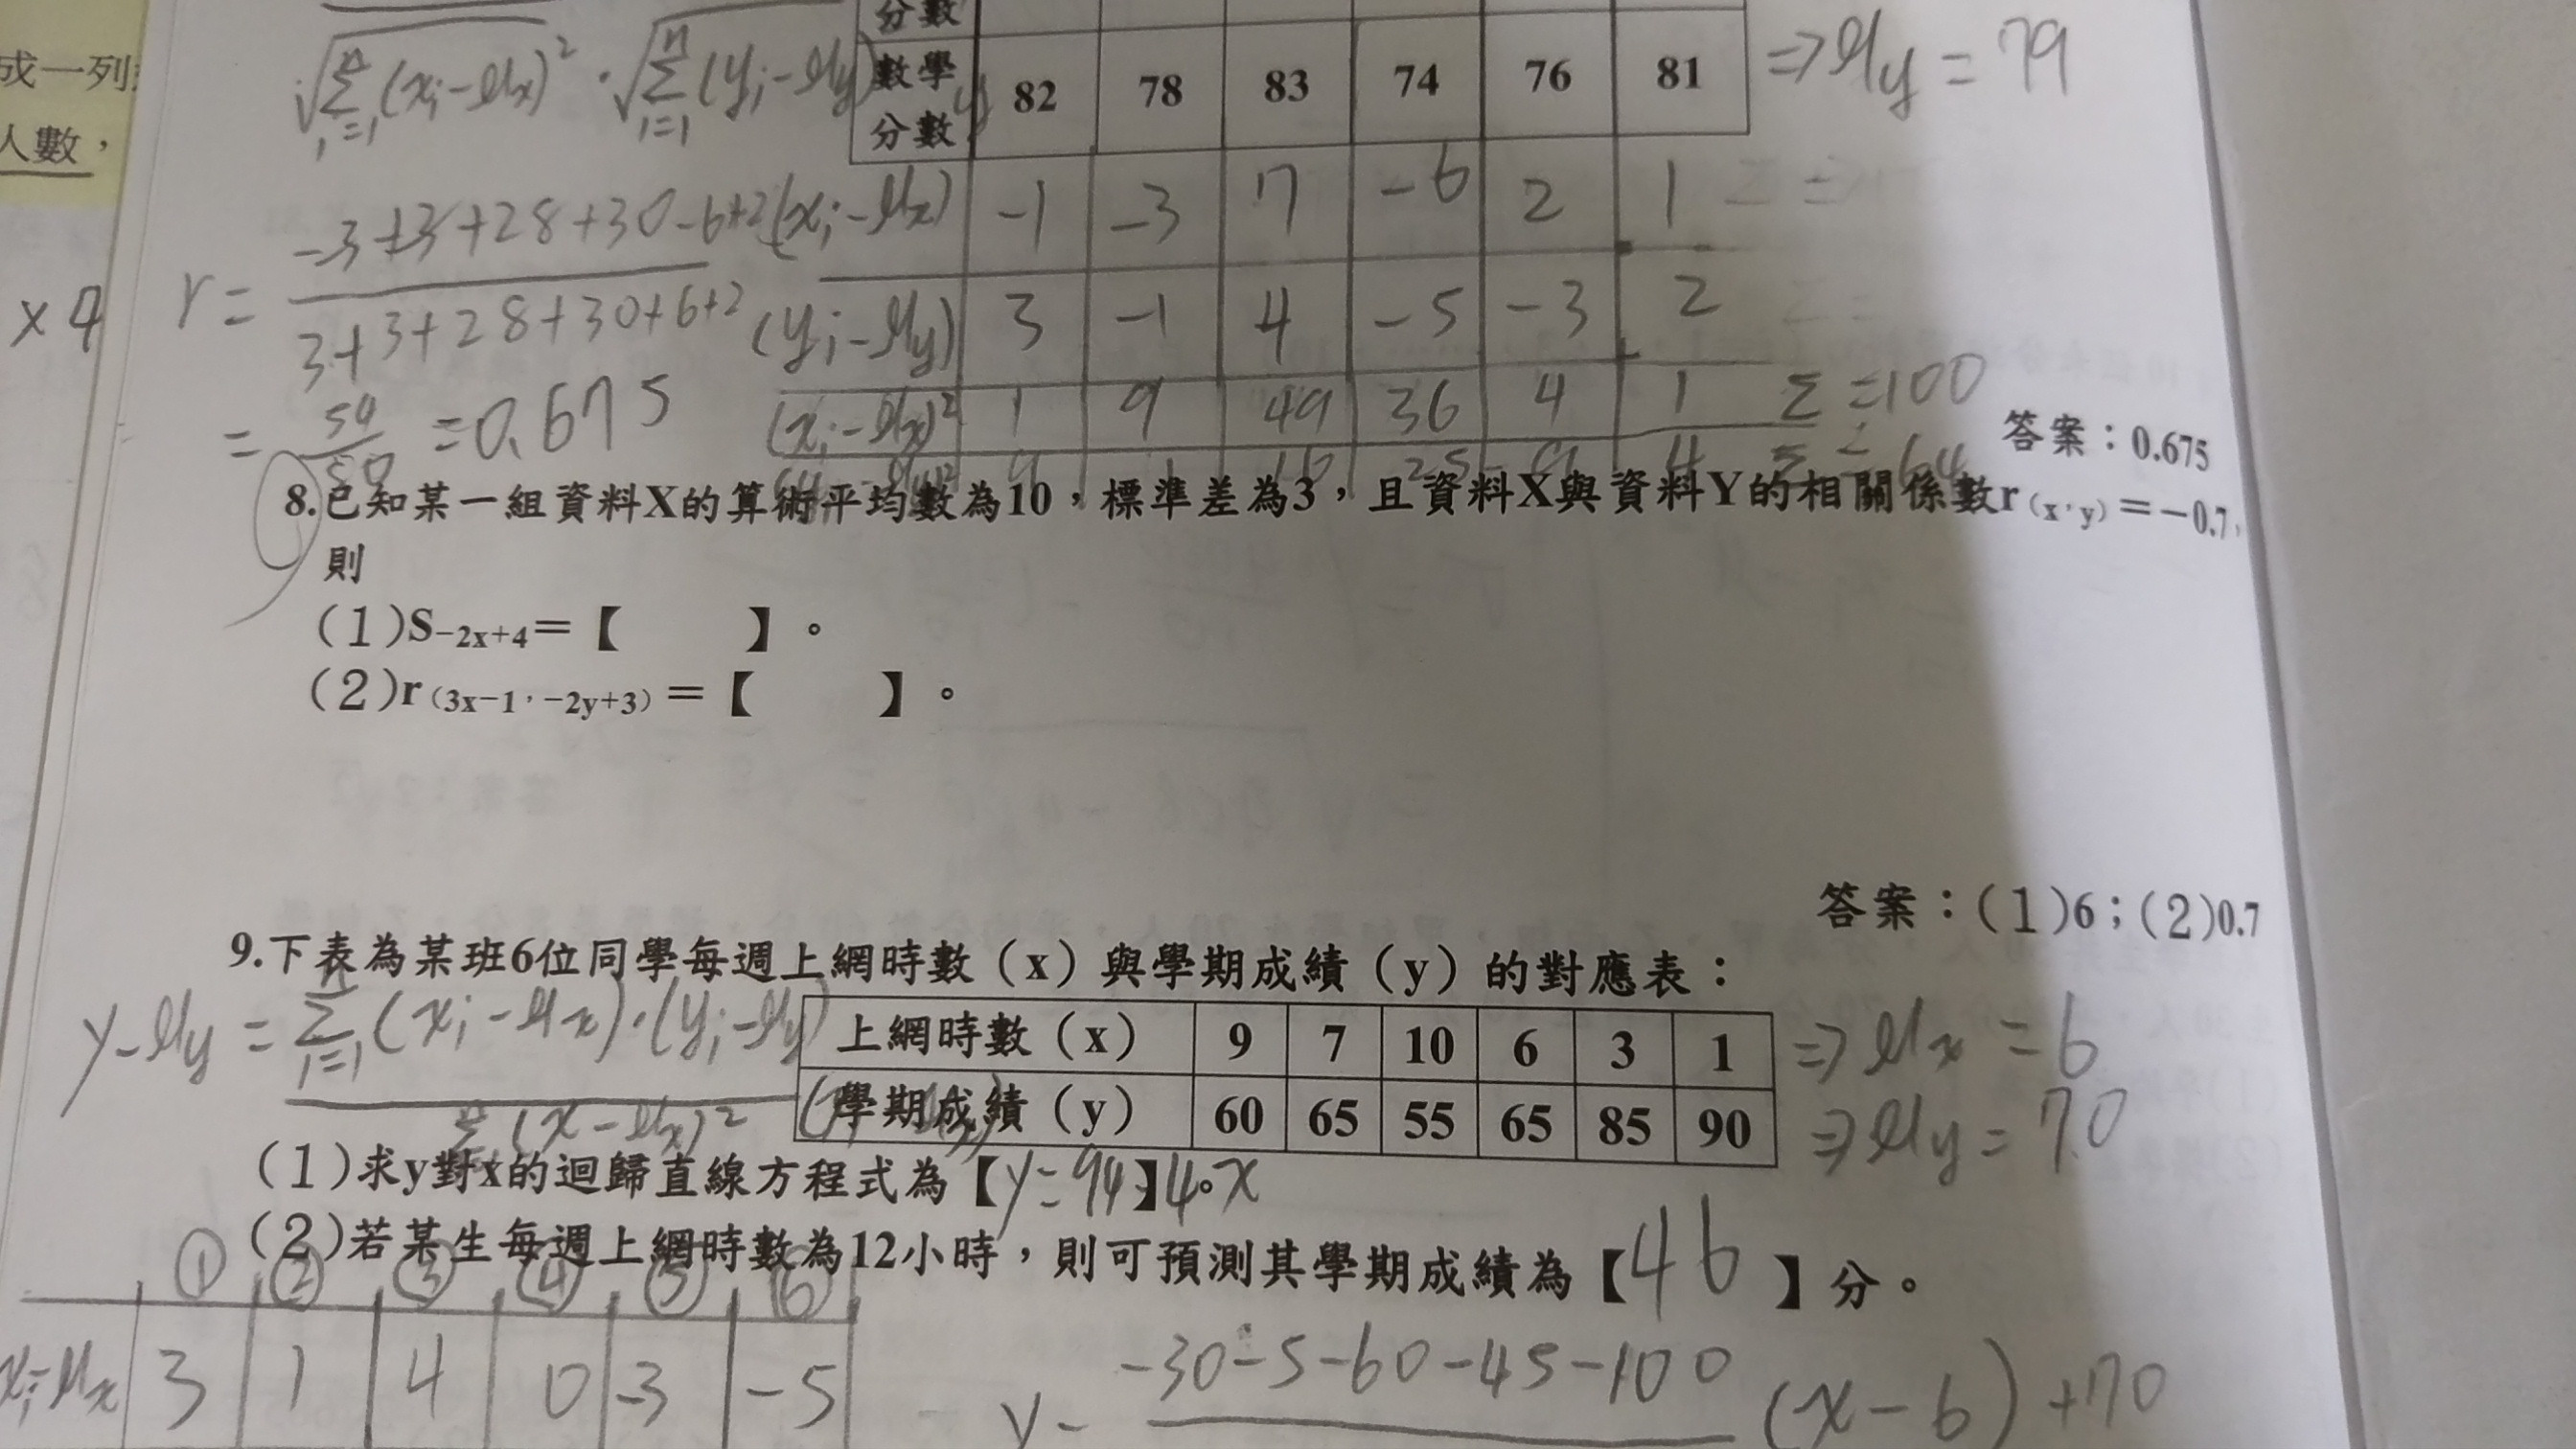 成一列
人數，
×4
分數
數學分數 82 78 83 74 76 81 ⇒μy=79
√Σ(xi-μx)²·√Σ(yi-μy)
i=1 i=1
(xi-μx) -1 -3 7 -6 2 1
(yi-μy) 3 -1 4 -5 -3 2
(xi-μx)² 1 9 49 36 4 1 Σ=100
r= -3+3+28+30-6+2
3+3+28+30+6+2
= =0.675
答案：0.675
8.已知某一組資料X的算術平均數為10，標準差為3，且資料X與資料Y的相關係數r（x，y）＝－0.7，
則
(1)S－2x+4＝【 】。
(2)r（3x－1，－2y+3）＝【 】。
答案：(1)6；(2)0.7
9.下表為某班6位同學每週上網時數（x）與學期成績（y）的對應表：
上網時數（x） 9 7 10 6 3 1 ⇒μx=6
學期成績（y） 60 65 55 65 85 90 ⇒μy=70
y-μy=Σ(xi-μx)·(yi-μy)
i=1
(x-μx)²
(1)求y對x的迴歸直線方程式為【y=94-】4。x
(2)若某生每週上網時數為12小時，則可預測其學期成績為【46】分。
① ② ③ ④ ⑤ ⑥
xi-μx 3 1 4 0 -3 -5
-30-5-60-45-100
(x-6)+70